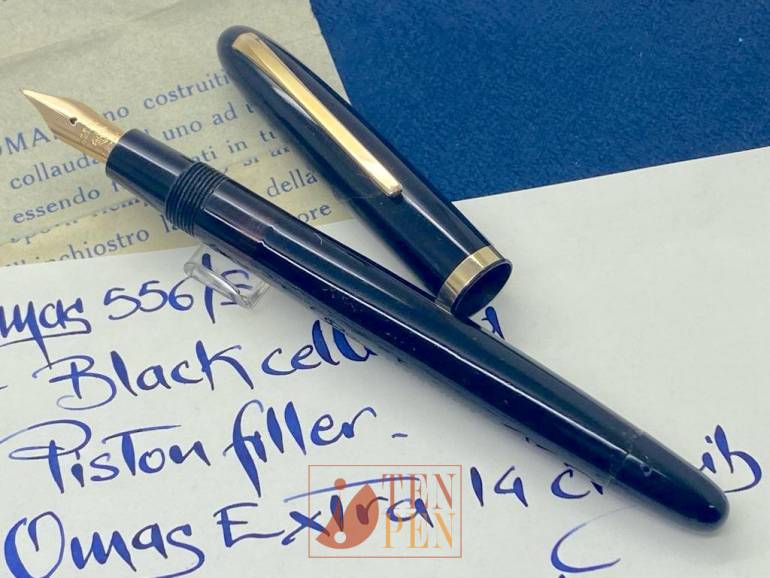 OMA no costruiti
collauda uno ad u
essendo ti in tu
della
inchiostro la ore
mas 556/S
- Black cell d
Piston filler -
Omas Extra 14 c ib
TEN
PEN